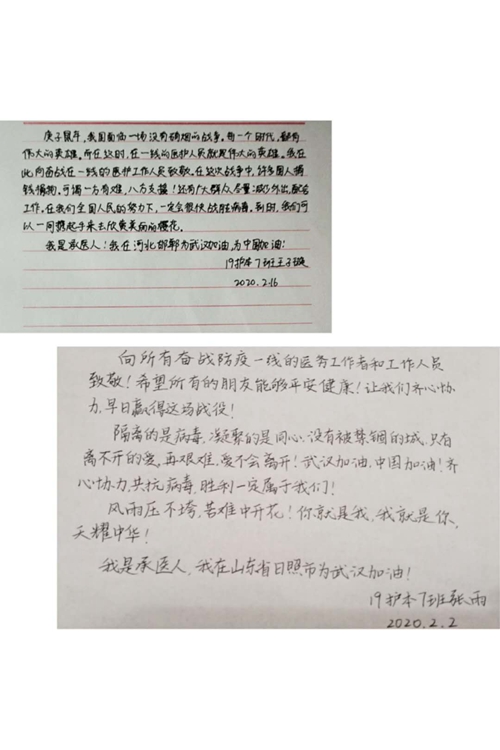 庚子鼠年,我国面临一场没有硝烟的战争。每一个时代,都有
伟大的英雄。而在这时,在一线的医护人员就是伟大的英雄。我在
此向奋战在一线的医护工作人员致敬。在这次战争中,许多国人捐
钱捐物。可谓一方有难,八方支援!还有广大群众尽量减少外出,配合
工作。在我们全国人民的努力下,一定会很快战胜病毒。到时,我们可
以一同携起手来去欣赏美丽的樱花。
我是承医人:我在河北邯郸为武汉加油,为中国加油!
19护本7班王子璇
2020.2.16
向所有奋战防疫一线的医务工作者和工作人员
致敬!希望所有的朋友能够平安健康!让我们齐心协
力,早日赢得这场战役!
隔离的是病毒,凝聚的是同心,没有被禁锢的城,只有
离不开的爱,再艰难,爱不会离开!武汉加油,中国加油!齐
心协力,共抗病毒,胜利一定属于我们!
风雨压不垮,苦难中开花!你就是我,我就是你,
天耀中华!
我是承医人,我在山东省日照市为武汉加油!
19护本7班张雨
2020.2.2